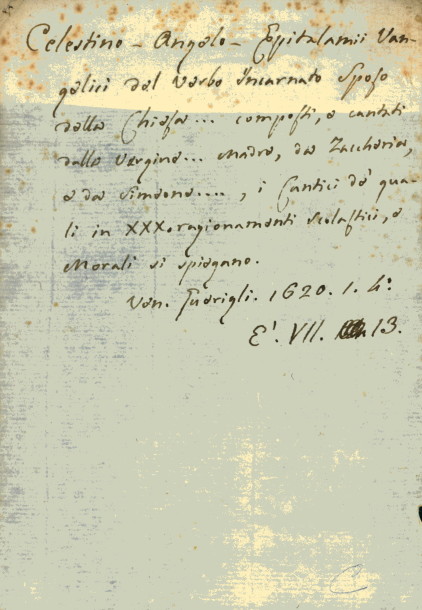 Celestino - Angelo - Epitalamii Van-
gelici del Verbo Incarnato Sposo
della Chiesa... composti, e cantati
dalla Vergine... Madre, da Zaccheria,
e da Simeone...., i Cantici de' qua-
li in XXX. ragionamenti scolastici, e
Morali si spiegano.
Ven. Fuerigli. 1620. 1. 4°
E'. VII. 13.